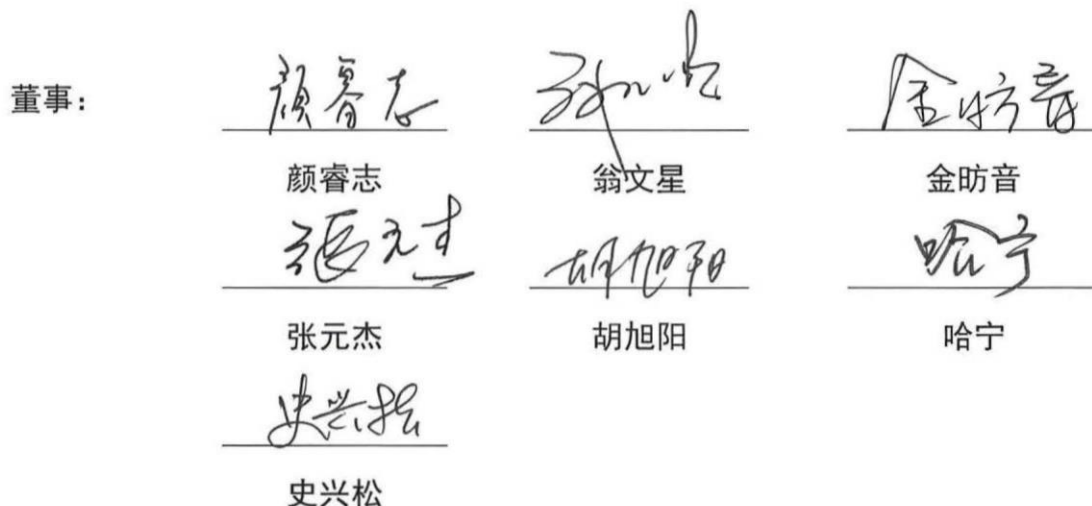 董事：
颜睿志 翁文星 金昉音
颜睿志 翁文星 金昉音
张元杰 胡旭阳 哈宁
张元杰 胡旭阳 哈宁
史兴松
史兴松